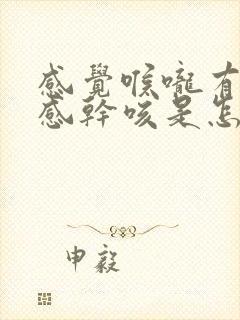 感覺喉嚨有
感幹咳是怎
申毅